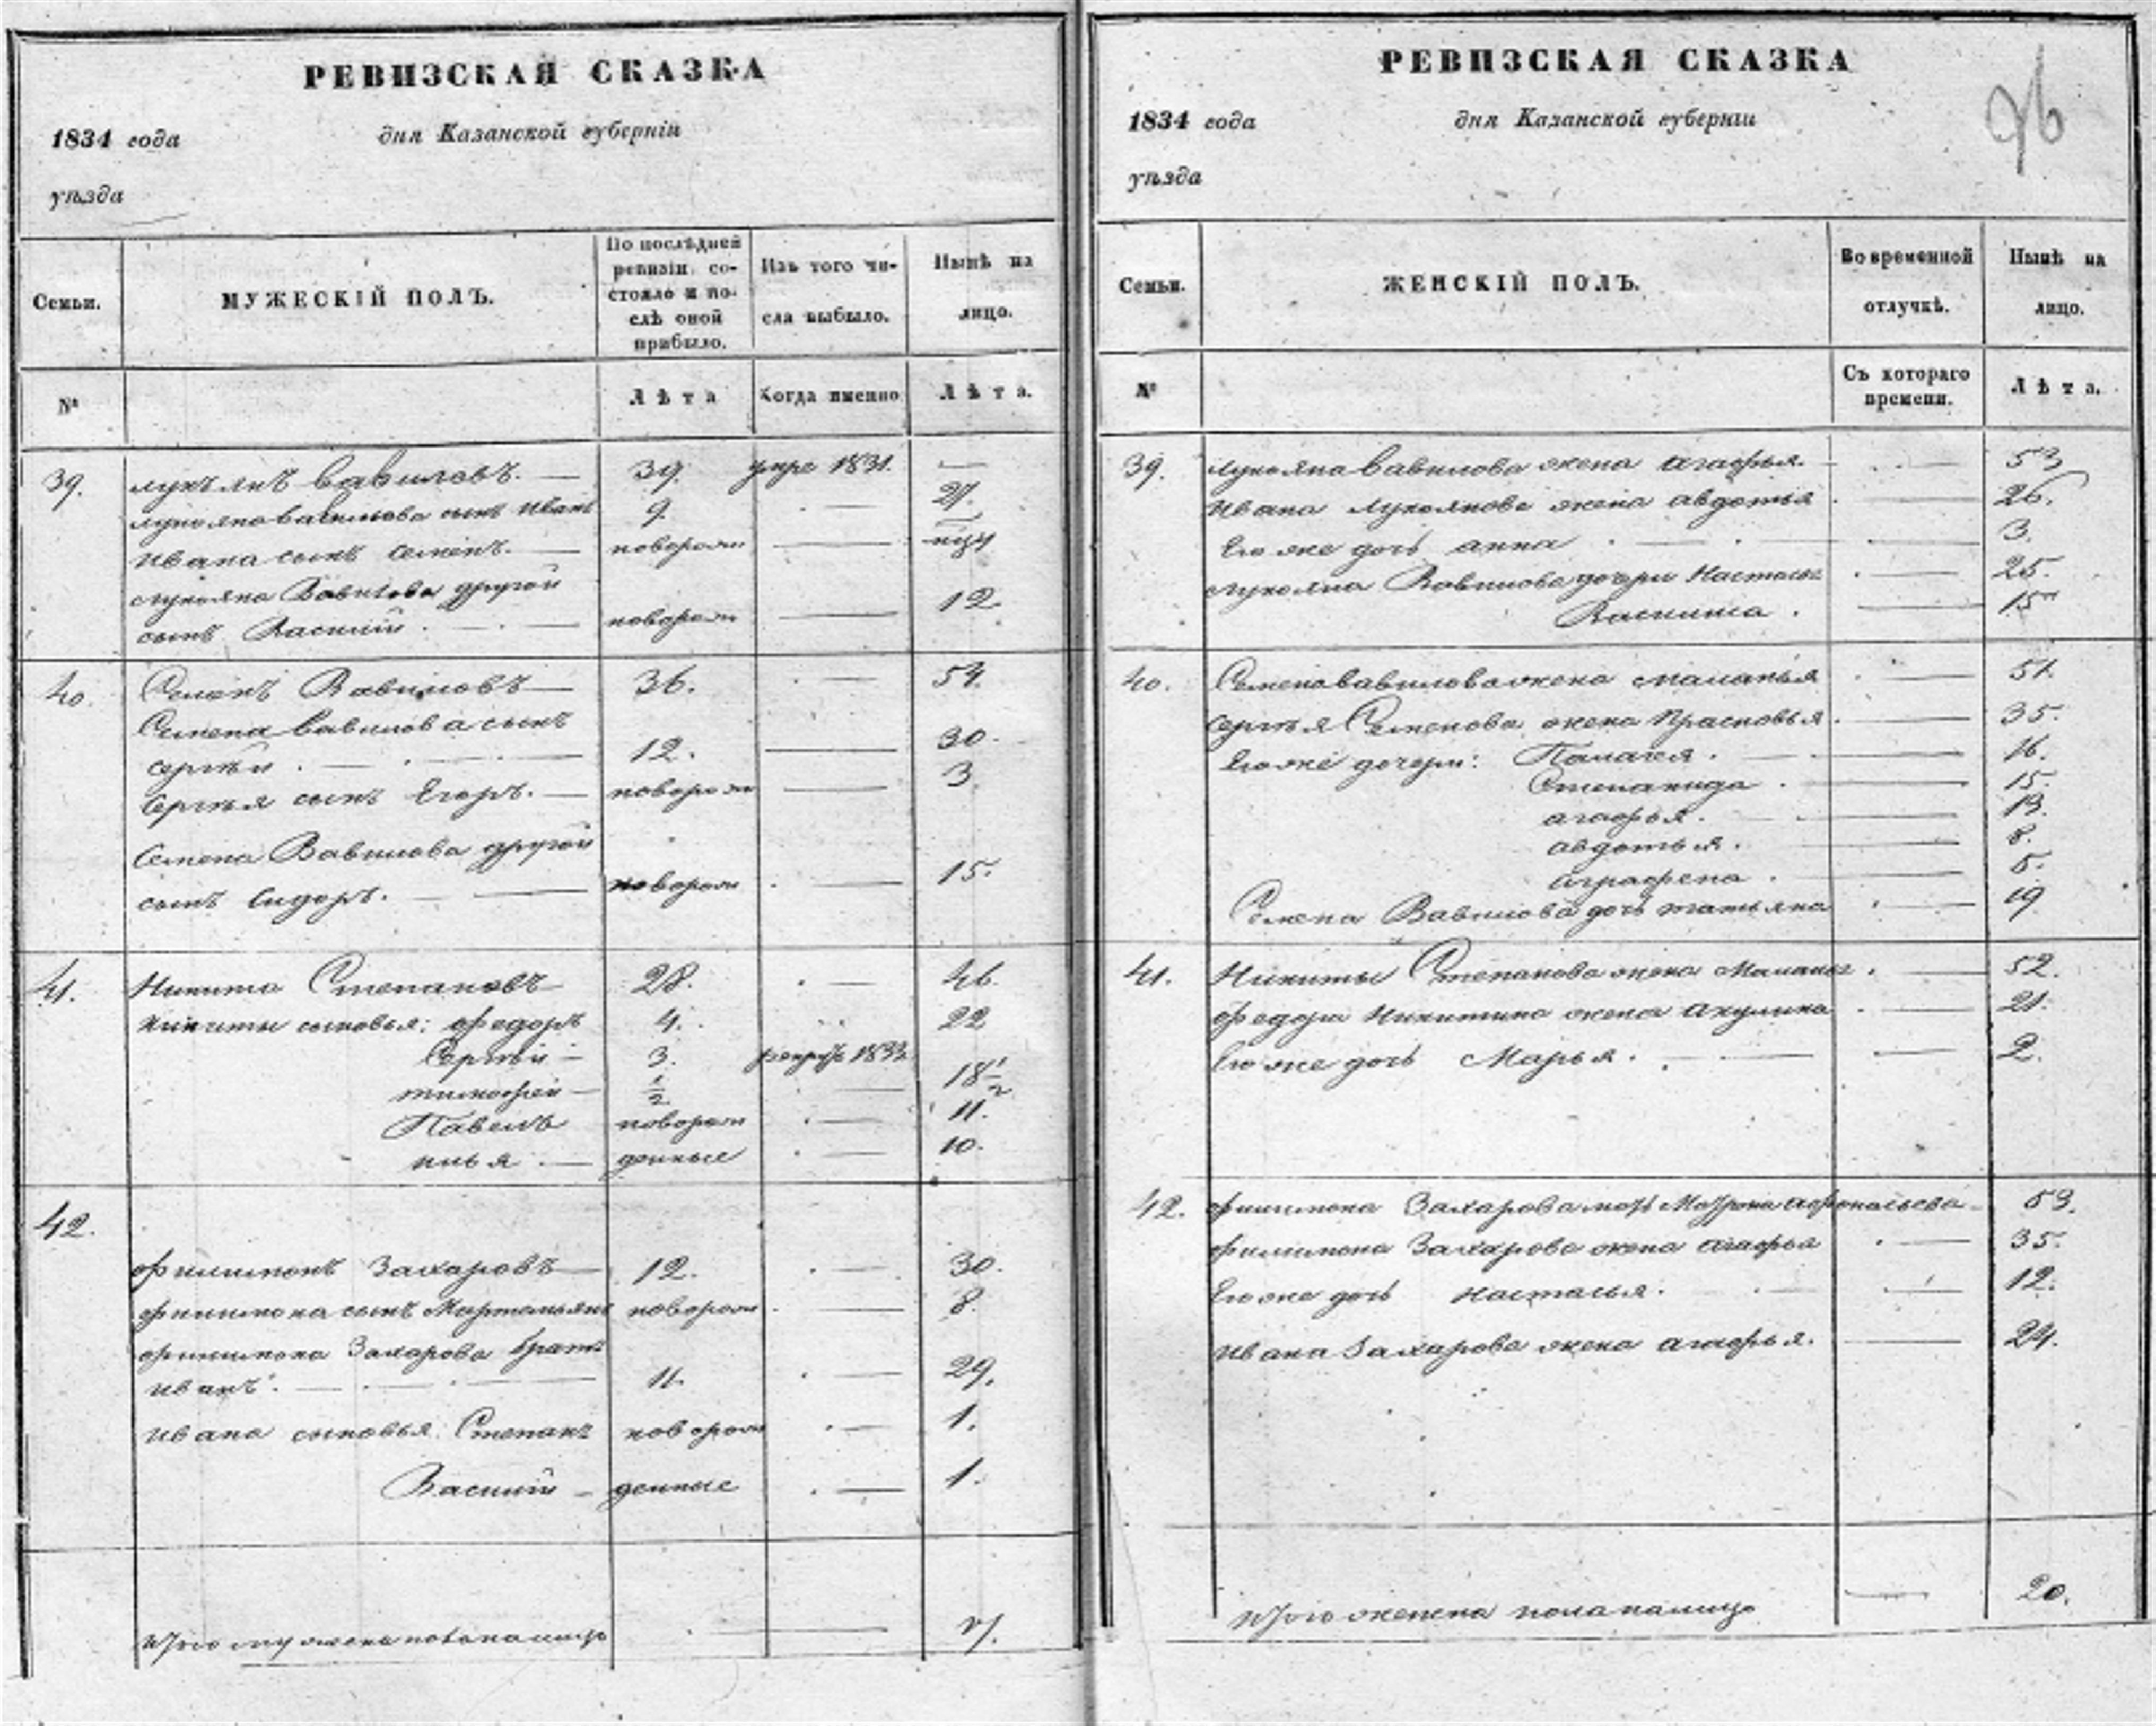 РЕВИЗСКАЯ СКАЗКА
1834 года
дня Казанской губерніи
уѣзда
Семьи.
МУЖЕСКІЙ ПОЛЪ.
По послѣдней ревизіи со-
стояло и по-
слѣ оной
прибыло.
Изъ того чи-
сла выбыло.
Нынѣ на
лицо.
№
Лѣта
Когда именно
Лѣта.
39. Лукъянъ Вавиловъ. — 39. умре 1831. —
Лукояна Вавилова сынъ Иванъ 9. — 27.
Ивана сынъ Семенъ. — новорож —
Лукояна Вавилова другой
сынъ Василий. — новорож — 12.
40. Семенъ Вавиловъ — 36. — 54.
Семена Вавилова сынъ
Сергѣй. — 12. — 30.
Сергѣя сынъ Егоръ. — новорож — 3.
Семена Вавилова другой
сынъ Сидоръ. — новорож — 15.
41. Никита Степановъ 28. — 46.
Никиты сыновья: Федоръ 4. 22
Сергѣй — 3. рекрутъ
Тимофей — ½ — 18½
Павелъ новорож — 11.
Илья — денные — 10.
42.
Филимонъ Захаровъ — 12. — 30.
Филимона сынъ Мартемьянъ новорож — 8.
Филимона Захарова братъ
Иванъ. — 11. — 29.
Ивана сыновья: Степанъ новорож — 1.
Василий — денные — 1.
Итого мужеска пола на лицо —
РЕВИЗСКАЯ СКАЗКА
1834 года
дня Казанской губерніи
уѣзда
Семьи.
ЖЕНСКІЙ ПОЛЪ.
Во временной
отлучкѣ.
Нынѣ на
лицо.
№
Съ котораго
времени.
Лѣта.
39. Лукояна Вавилова жена Агафья. — 53
Ивана Лукоянова жена Авдотья — 26.
Его же дочь Анна — 3.
Лукояна Вавилова дочери Настасья — 25.
Василиса. — 15
40. Семена Вавилова жена Маланья — 51.
Сергѣя Семенова жена Прасковья. — 35.
Его же дочери: Палагея. — 16.
Степанида. — 15.
Агафья. — 13.
Авдотья. — 8.
Аграфена. — 5.
Семена Вавилова дочь Татьяна — 19
41. Никиты Степанова жена Маланья. — 52.
Федора Никитина жена Акулина — 21.
Его же дочь Марья. — 2.
42. Филимона Захарова мать Матрона Афонасьева — 53.
Филимона Захарова жена Агафья — 35.
Его же дочь Настасья. — 12.
Ивана Захарова жена Агафья. — 24.
Итого женска пола на лицо — 20.